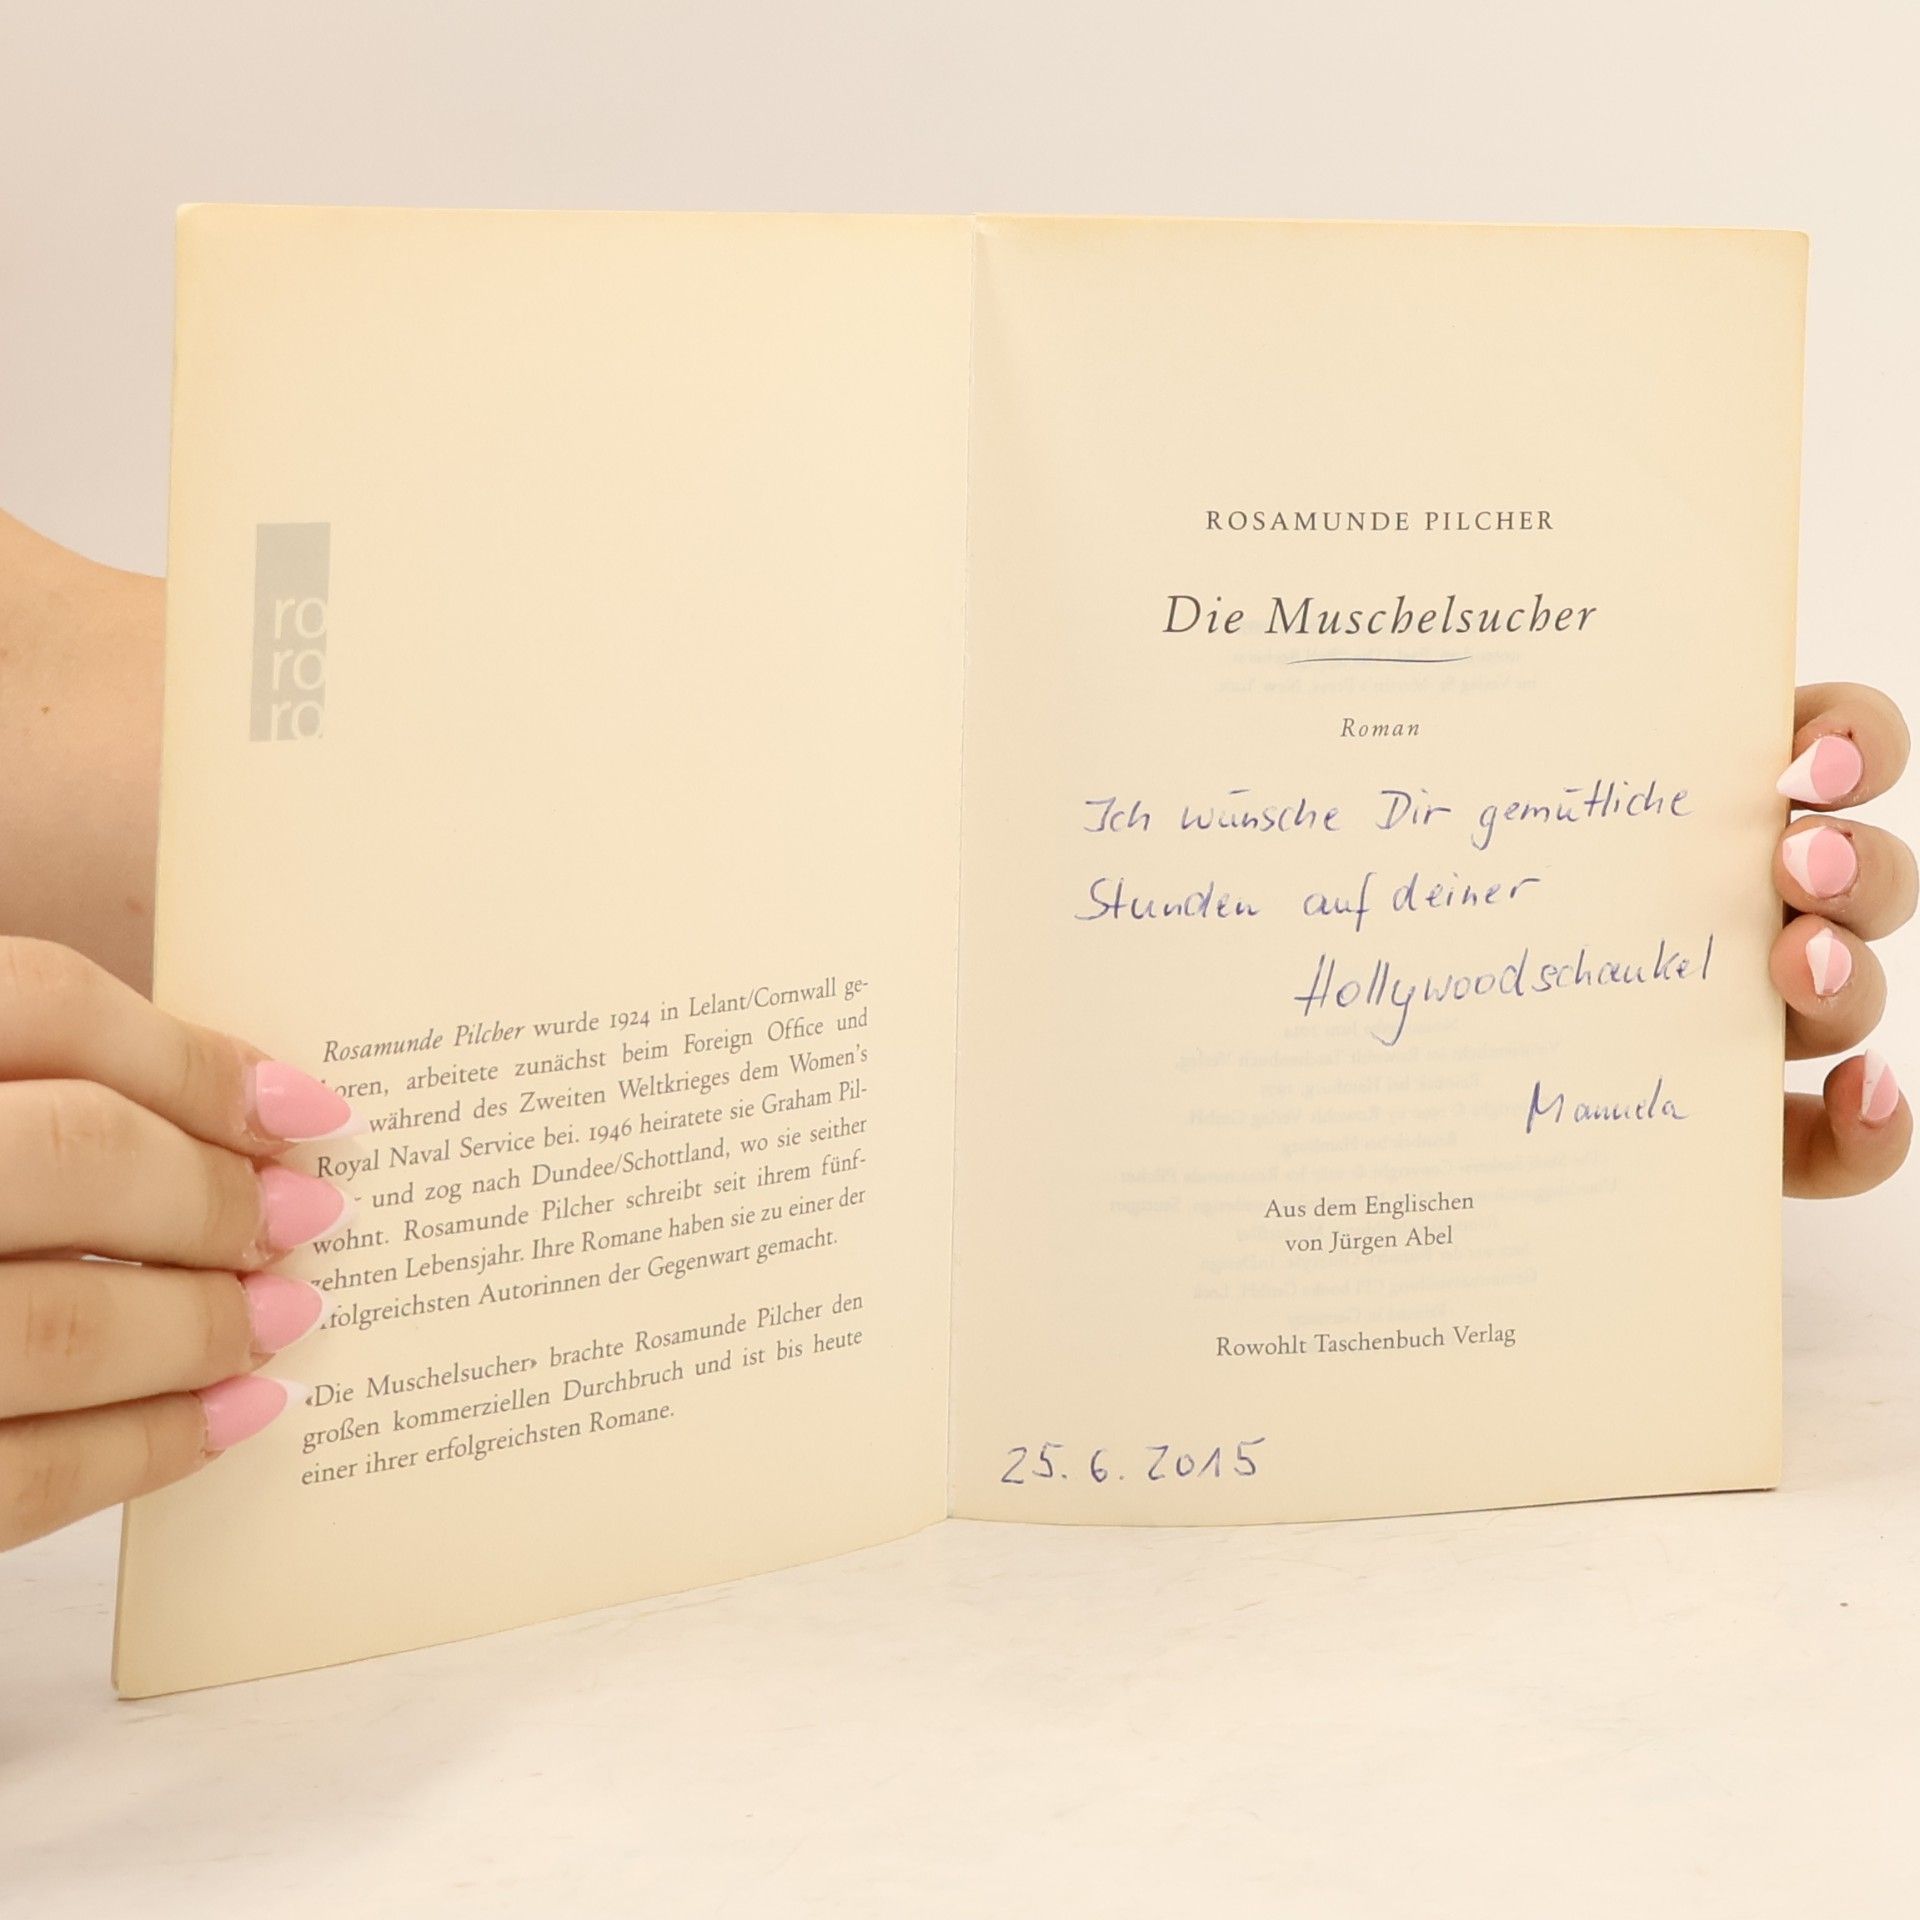 ro
ro
ro
Rosamunde Pilcher wurde 1924 in Lelant/Cornwall ge-
oren, arbeitete zunächst beim Foreign Office und
während des Zweiten Weltkrieges dem Women's
Royal Naval Service bei. 1946 heiratete sie Graham Pil-
- und zog nach Dundee/Schottland, wo sie seither
wohnt. Rosamunde Pilcher schreibt seit ihrem fünf-
zehnten Lebensjahr. Ihre Romane haben sie zu einer der
folgreichsten Autorinnen der Gegenwart gemacht.
«Die Muschelsucher» brachte Rosamunde Pilcher den
großen kommerziellen Durchbruch und ist bis heute
einer ihrer erfolgreichsten Romane.
ROSAMUNDE PILCHER
Die Muschelsucher
Roman
Ich wünsche Dir gemütliche
Stunden auf deiner
Hollywoodschaukel
Manuela
Aus dem Englischen
von Jürgen Abel
Rowohlt Taschenbuch Verlag
25. 6. 2015